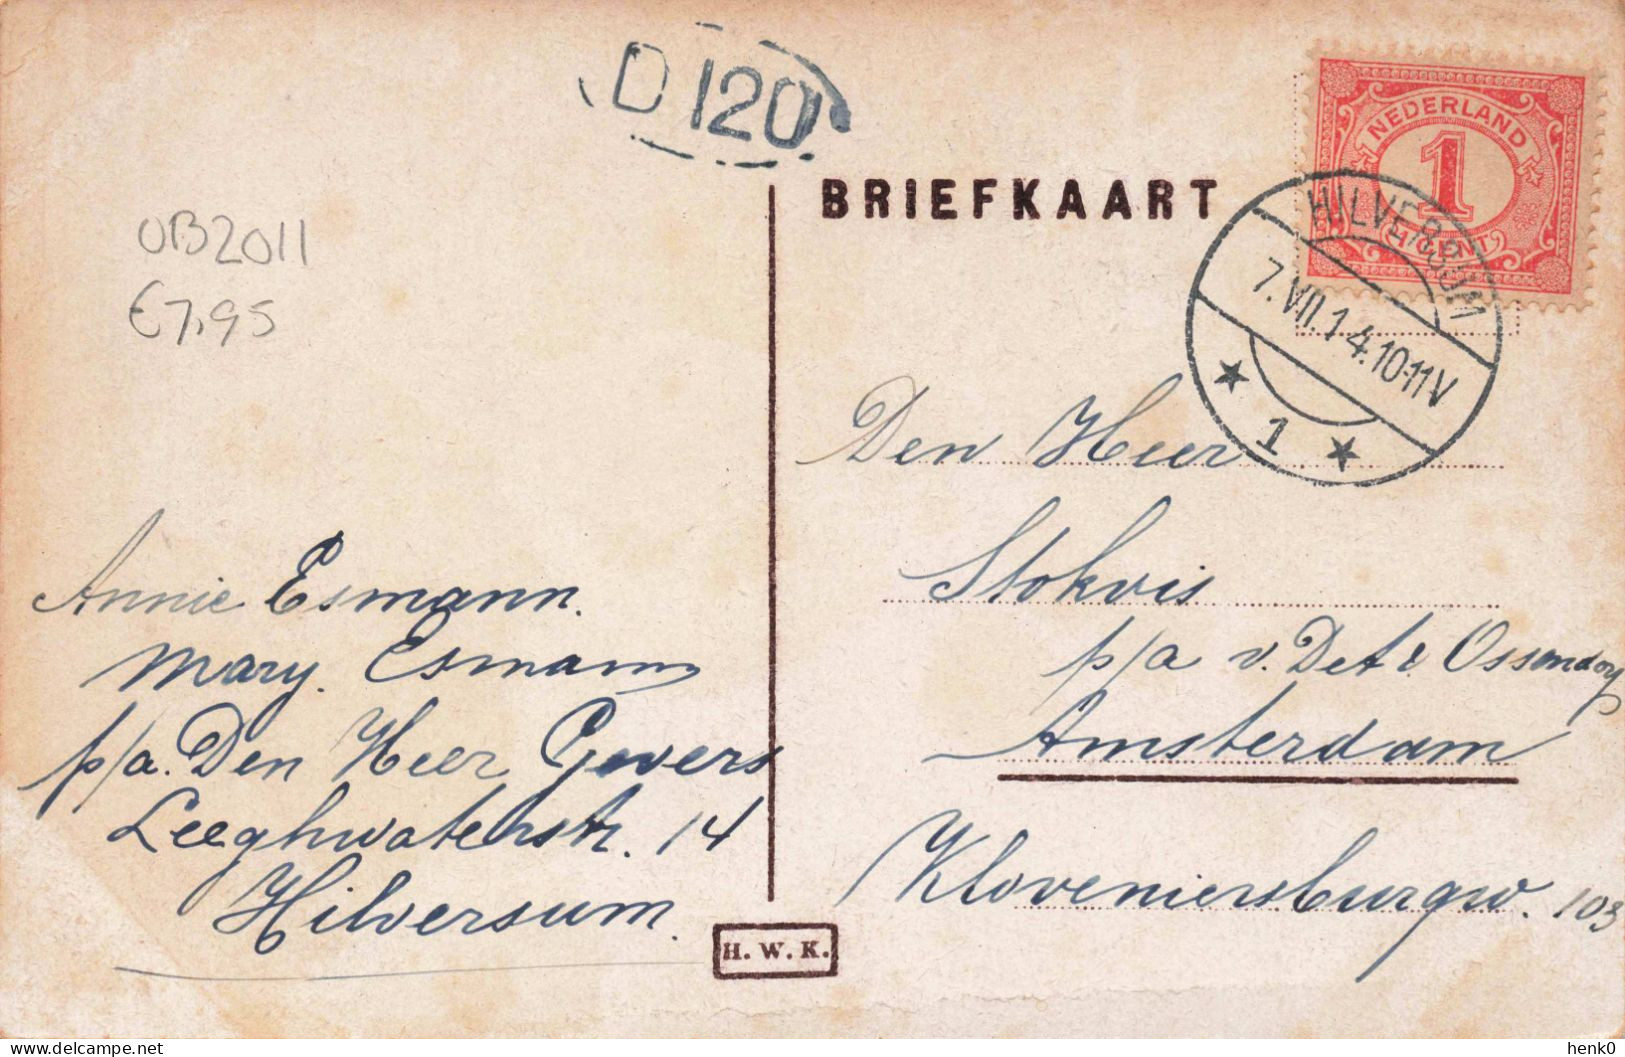 D 120
NEDERLAND
1
CENT
HILVERSUM
7.VII.14.10-11V
1
BRIEFKAART
UB2011
€7,95
Den Heer
Stokvis
p/a v. Det &
Amsterdam
Kloveniersburgw. 103
Annie Esmann.
Mary. Esmann
p/a. Den Heer Gevers
Leeghwaterstr. 14
Hilversum.
H. W. K.
www.delcampe.net
henk0